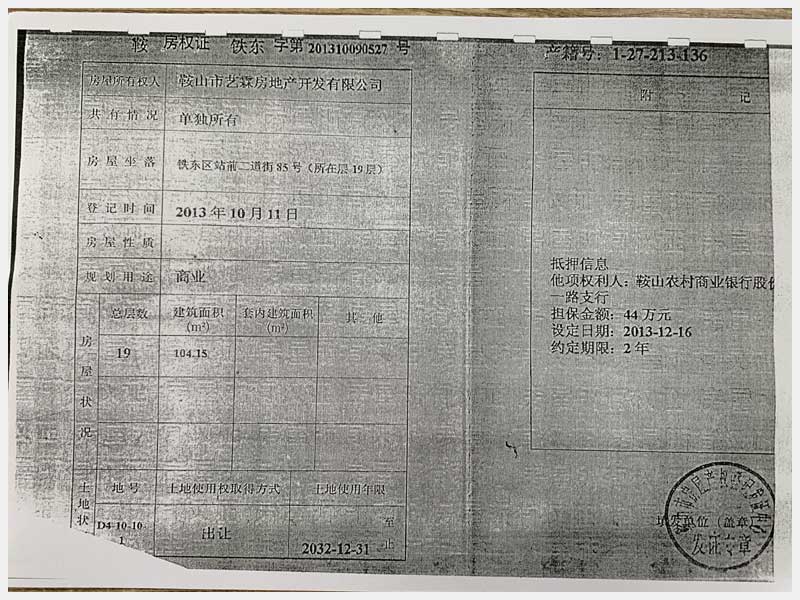 鞍 房权证 铁东 字第 201310090527 号
产籍号：1-27-213-136
房屋所有权人 鞍山市艺霖房地产开发有限公司
共有情况 单独所有
房屋坐落 铁东区站前二道街 85 号（所在层 19 层）
登记时间 2013 年 10 月 11 日
房屋性质
规划用途 商业
房屋状况
总层数 建筑面积（m²） 套内建筑面积（m²） 其他
19 104.15
土地状
地号 土地使用权取得方式 土地使用年限
D4-10-10-1 出让 至 2032-12-31 止
附 记
抵押信息
他项权利人：鞍山农村商业银行股份
一路支行
担保金额：44 万元
设定日期：2013-12-16
约定期限：2 年
填发单位（盖章）
发证专章